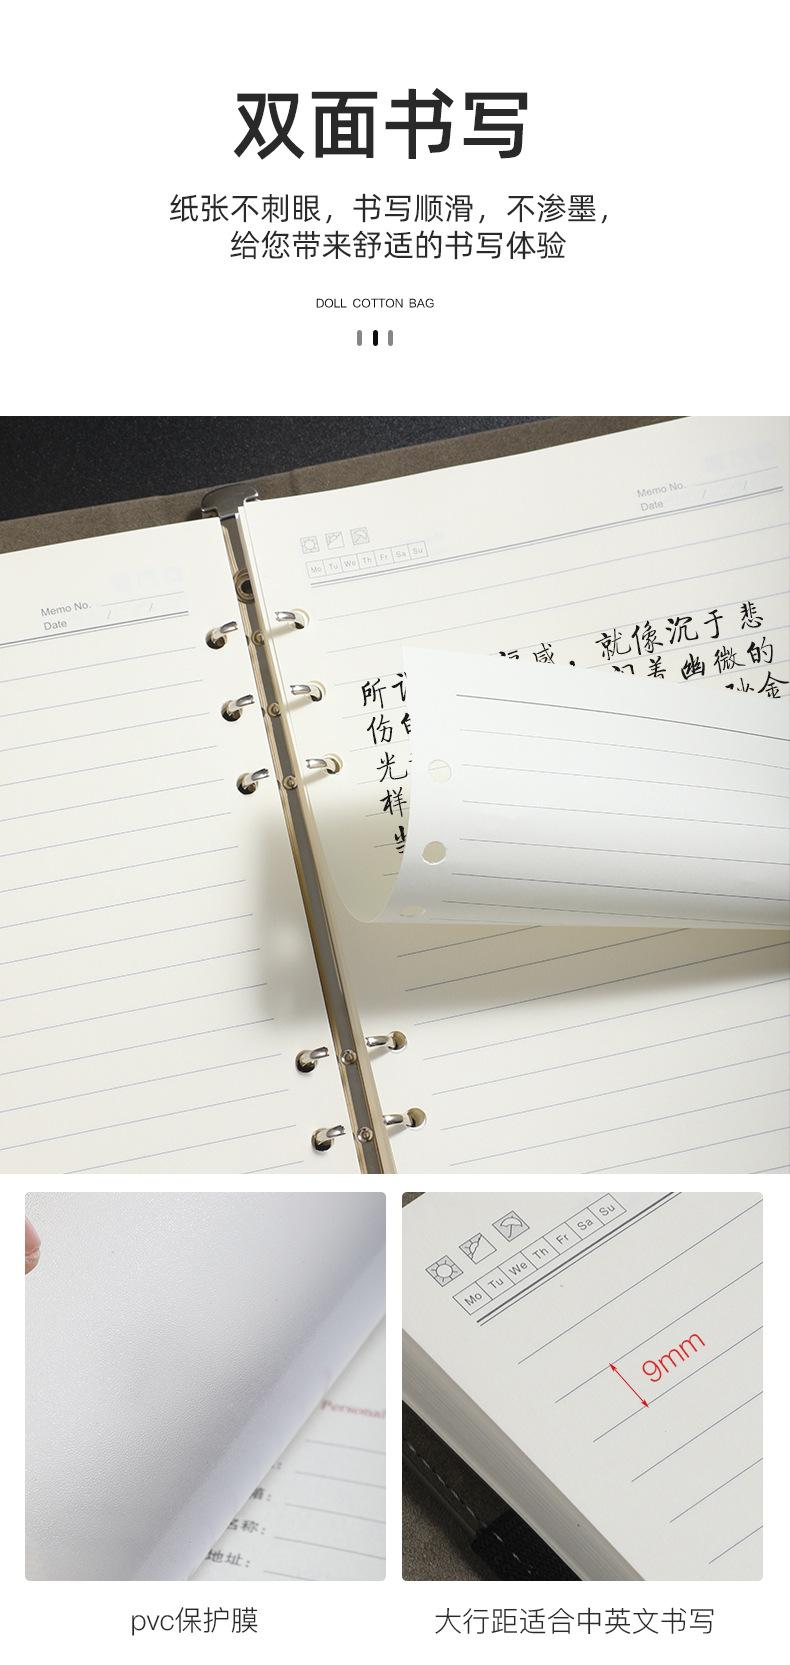 双面书写
纸张不刺眼，书写顺滑，不渗墨，
给您带来舒适的书写体验
DOLL COTTON BAG
Memo No.
Date / /
Memo No.
Date / /
Mo Tu We Th Fr Sa Su
感，就像沉于悲
所
伤
幽微的
光
金
样
Personal
名称：
地址：
Mo Tu We Th Fr Sa Su
9mm
pvc保护膜
大行距适合中英文书写